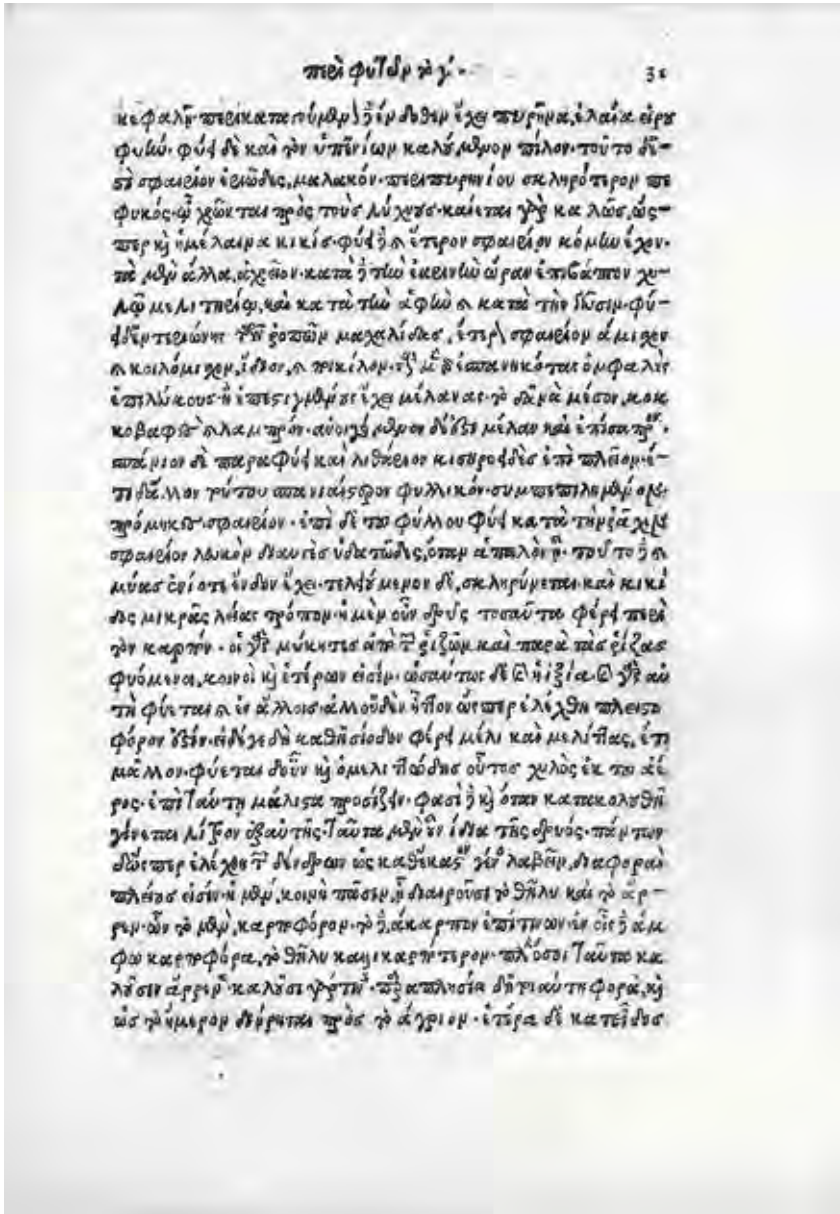 περὶ φυτῶν τὸ γ.
κεφαλῇ περικαταγνύμενον ἔνδοθεν ἔχει πυρῆνα, ἐλαία εἰρυ
φυκώ· φύει δὲ καὶ τὸν ὑπ' ἐνίων καλούμενον πίλον· τοῦτο δέ
σφαιρίον ἐριῶδες, μαλακόν· περὶ πυρηνίου σκληρότερον πε
φυκός· ᾧ χρῶνται πρὸς τοὺς λύχνους· καίεται γὰρ καλῶς, ὥς-
περ καὶ ἡ μέλαινα κικίς· φύει δὲ καὶ ἕτερον σφαιρίον κόμην ἔχον·
τὰ μὲν ἄλλα, ἀχρεῖον· κατὰ δὲ τὴν ἐαρινὴν ὥραν ἐπιβάπτον χυ-
λῷ μελιτηρῷ, καὶ κατὰ τὴν ἁφὴν καὶ κατὰ τὴν γεῦσιν· φύ-
μαχαλίδας, ἕτερον σφαιρίον ἄμισχον
καὶ κοιλόμισχον, ἴδιον, καὶ ποικίλον· ὀμφαλοὺς
ἐπιλεύκους ἢ ἐπεστιγμένους ἔχει μέλανας· τὸ δ' ἀνὰ μέσον, κοκ
κοβαφὲς καὶ λαμπρόν· ἀνοιγόμενον δ' ἐστὶ μέλαν καὶ ἐπίσαπρον.
σπάνιον δὲ παραφύει καὶ λιθάριον κισσηροειδὲς ἐπὶ πλεῖον· ἔ-
τι δ' ἄλλο τούτου σπανιώτερον φυλλικόν· συμπεπιλημένον
πρόμηκες σφαιρίον· ἐπὶ δὲ τοῦ φύλλου φύει κατὰ τὴν ῥάχιν
σφαιρίον λευκὸν διαυγὲς ὑδατῶδες, ὅταν ἁπαλὸν ᾖ· τοῦτο δὲ καὶ
μύας ἐνίοτε ἔνδον ἔχει· τελειούμενον δὲ, σκληρύνεται καὶ κικί
δος μικρᾶς λείας τρόπον· ἡ μὲν οὖν δρῦς τοσαῦτα φέρει περὶ
τὸν καρπόν· οἱ γὰρ μύκητες ἀπὸ τῶν ῥιζῶν καὶ παρὰ τὰς ῥίζας
φυόμενοι, κοινοὶ καὶ ἑτέρων εἰσίν· ὡσαύτως δὲ καὶ ἡ ἰξία· καὶ γὰρ αὐ
τὴ φύεται καὶ ἐν ἄλλοις· ἀλλ' οὐδὲν ἧττον ὥσπερ ἐλέχθη πλειστο
φόρον ἐστίν· εἰ δέ γε δὴ καθ' Ἡσίοδον φέρει μέλι καὶ μελίττας, ἔτι
μᾶλλον· φύεται δ' οὖν καὶ ὁ μελιττώδης οὗτος χυλὸς ἐκ τοῦ ἀέ
ρος· ἐπὶ ταύτῃ μάλιστα προσίζειν· φασὶ δὲ καὶ ὅταν κατακαυθῇ
γίνεται λίτρον ἐξ αὐτῆς· ταῦτα μὲν οὖν ἴδια τῆς δρυός· πάντων
δ' ὥσπερ ἐλέχθη τῶν δένδρων ὡς καθ' ἕκαστον γένος λαβεῖν, διαφοραὶ
πλείους εἰσίν· ἡ μὲν, κοινὴ πᾶσιν, ᾗ διαιροῦσι τὸ θῆλυ καὶ τὸ ἄρ-
ρεν· ὧν τὸ μὲν, καρποφόρον· τὸ δὲ, ἄκαρπον ἐπί τινων· ἐν οἷς δὲ ἄμ
φω καρποφόρα, τὸ θῆλυ καλλικαρπότερον· πλὴν ὅσοι ταῦτα κα
λοῦσιν ἄρρενα· καλοῦσι γάρ τινες· παραπλησία δ' ἡ τοιαύτη φορὰ, καὶ
ὡς τὸ ἥμερον διῄρηται πρὸς τὸ ἄγριον· ἑτέρα δὲ κατ' εἶδος